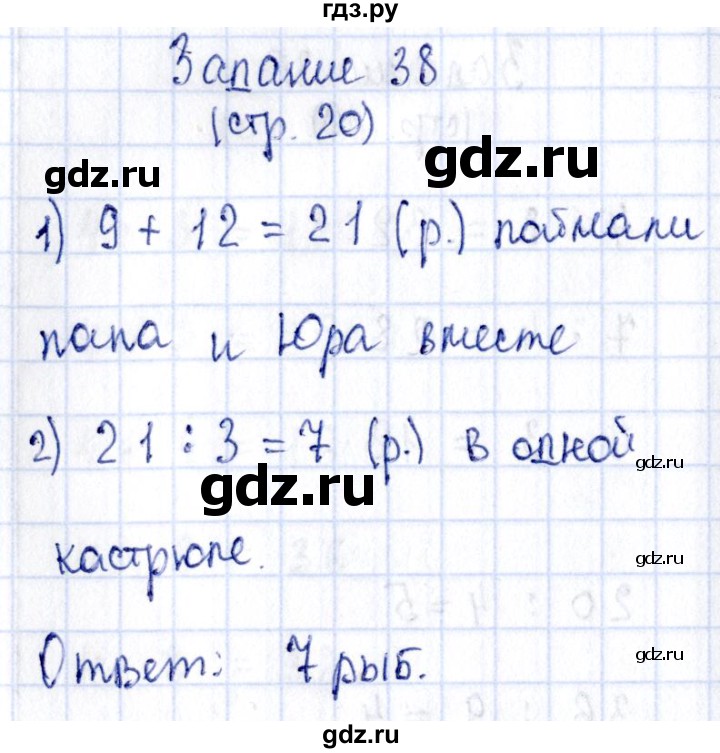 гдз.ру
Задание 38
(стр. 20)
gdz.ru
gdz.ru
1) 9 + 12 = 21 (р.) поймали
папа и Юра вместе
2) 21 : 3 = 7 (р.) в одной
gdz.ru
gdz.ru
кастрюле.
gdz.ru
20 : 4 = 5
Ответ: 7 рыб.
gdz.ru
gdz.ru